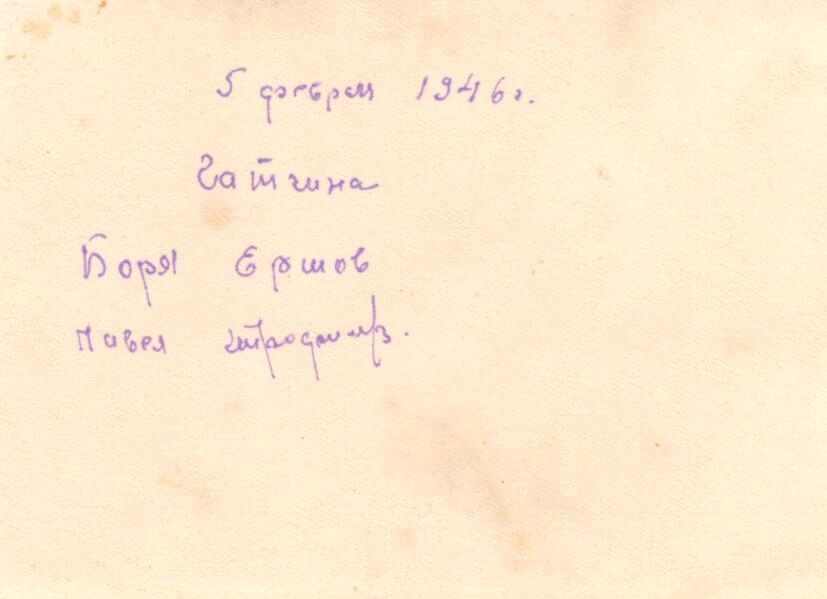 5 февраля 1946 г.
Гатчина
Боря Ершов
Павел